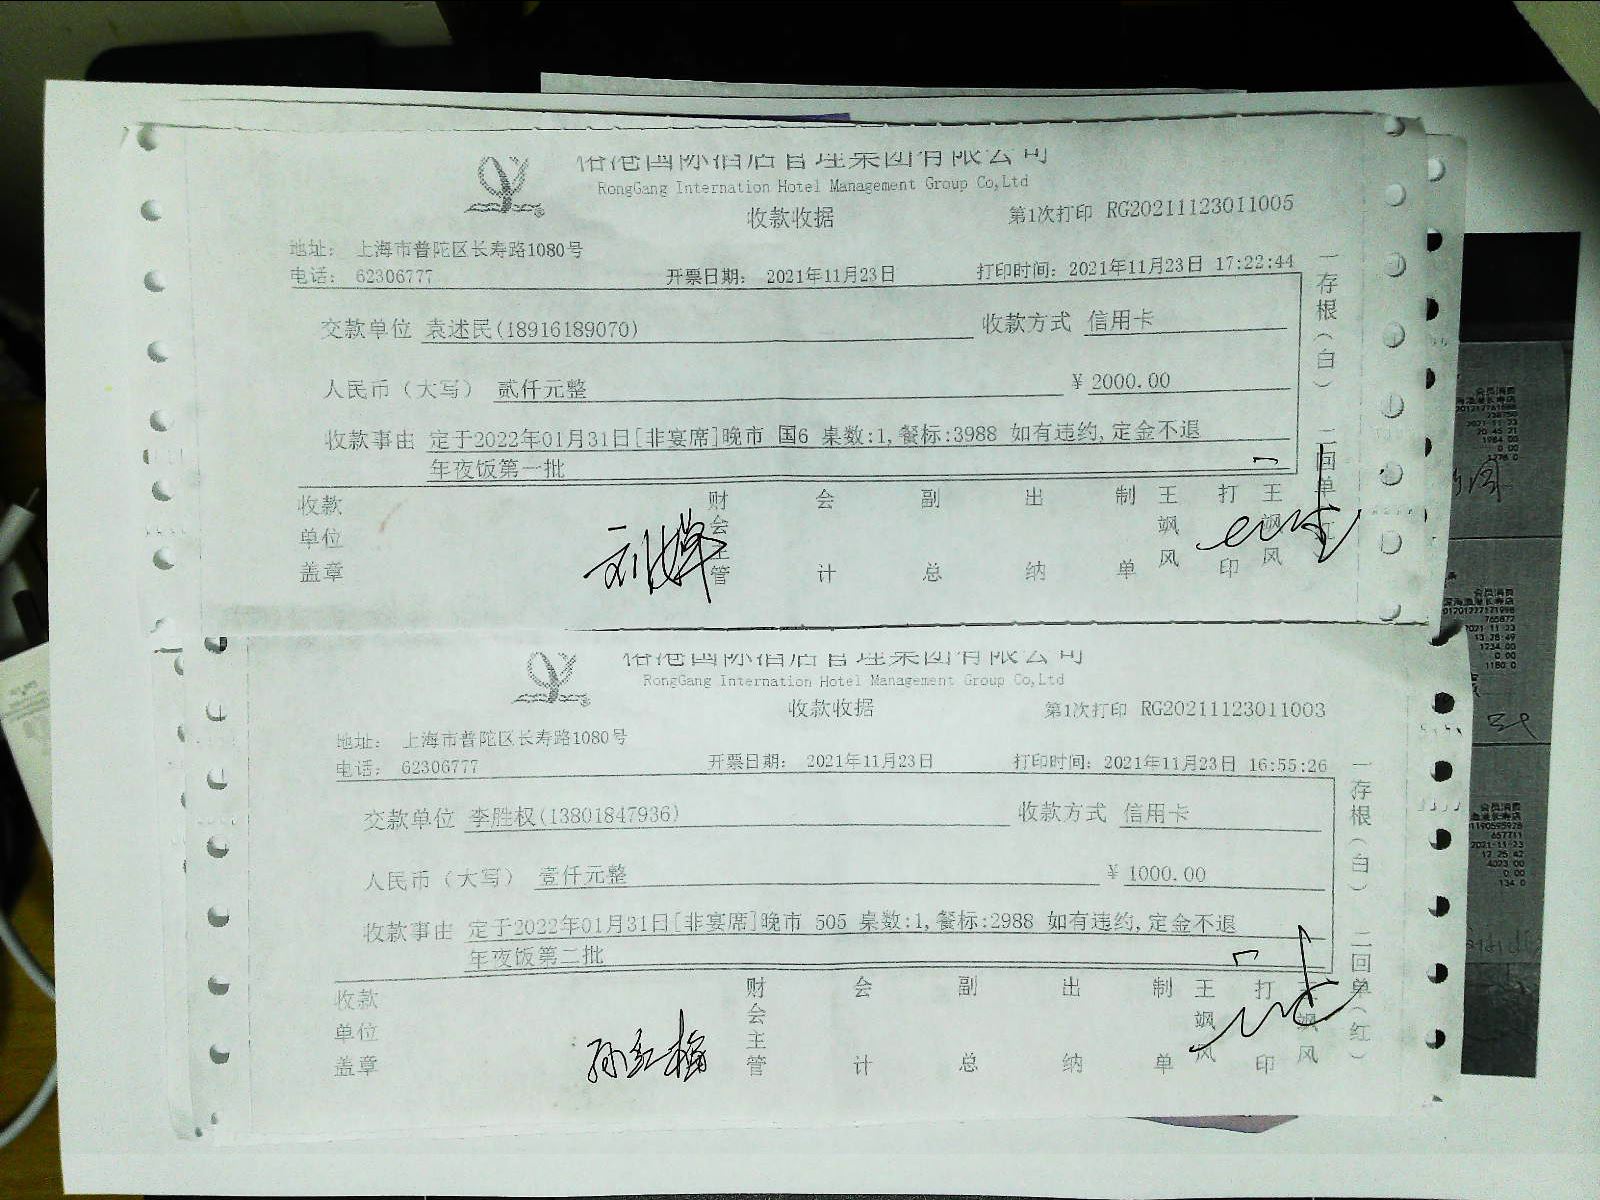 榕港国际酒店管理集团有限公司
RongGang Internation Hotel Management Group Co,Ltd
收款收据
第1次打印 RG20211123011005
地址： 上海市普陀区长寿路1080号
电话： 62306777
开票日期： 2021年11月23日
打印时间：2021年11月23日 17:22:44
交款单位 袁述民(18916189070)
收款方式 信用卡
人民币（大写） 贰仟元整
¥ 2000.00
收款事由 定于2022年01月31日[非宴席]晚市 国6 桌数:1,餐标:3988 如有违约,定金不退
年夜饭第一批
收款单位盖章
财会主管
会计
副总
出纳
制单
王飒风
打印
王飒风
一存根(白)
二回单(红)
榕港国际酒店管理集团有限公司
RongGang Internation Hotel Management Group Co,Ltd
收款收据
第1次打印 RG20211123011003
地址： 上海市普陀区长寿路1080号
电话： 62306777
开票日期： 2021年11月23日
打印时间：2021年11月23日 16:55:26
交款单位 李胜权(13801847936)
收款方式 信用卡
人民币（大写） 壹仟元整
¥ 1000.00
收款事由 定于2022年01月31日[非宴席]晚市 505 桌数:1,餐标:2988 如有违约,定金不退
年夜饭第二批
收款单位盖章
孙红梅
财会主管
会计
副总
出纳
制单
王飒风
打印
王飒风
一存根(白)
二回单(红)